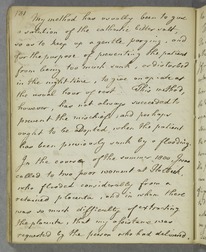 181
My method has usually been to give
a solution of the cathartic bitter salt,
so as to keep up a gentle purging, and
for the purpose of preventing the patient
from being too much sunk, or disturbed
in the night time, to give an opiate at
the usual hour of rest. This method,
however, has not always succeeded to
prevent the mischief, and perhaps
ought to be Doubted, when the patient
has been previously sunk by a flooding.
In the course of the summer I was
called to two poor women at
who flooded considerably from a
retained placenta, and in whom there
was so much difficulty of extracting
the placenta, that my assistance was
requested by the person who had delivered